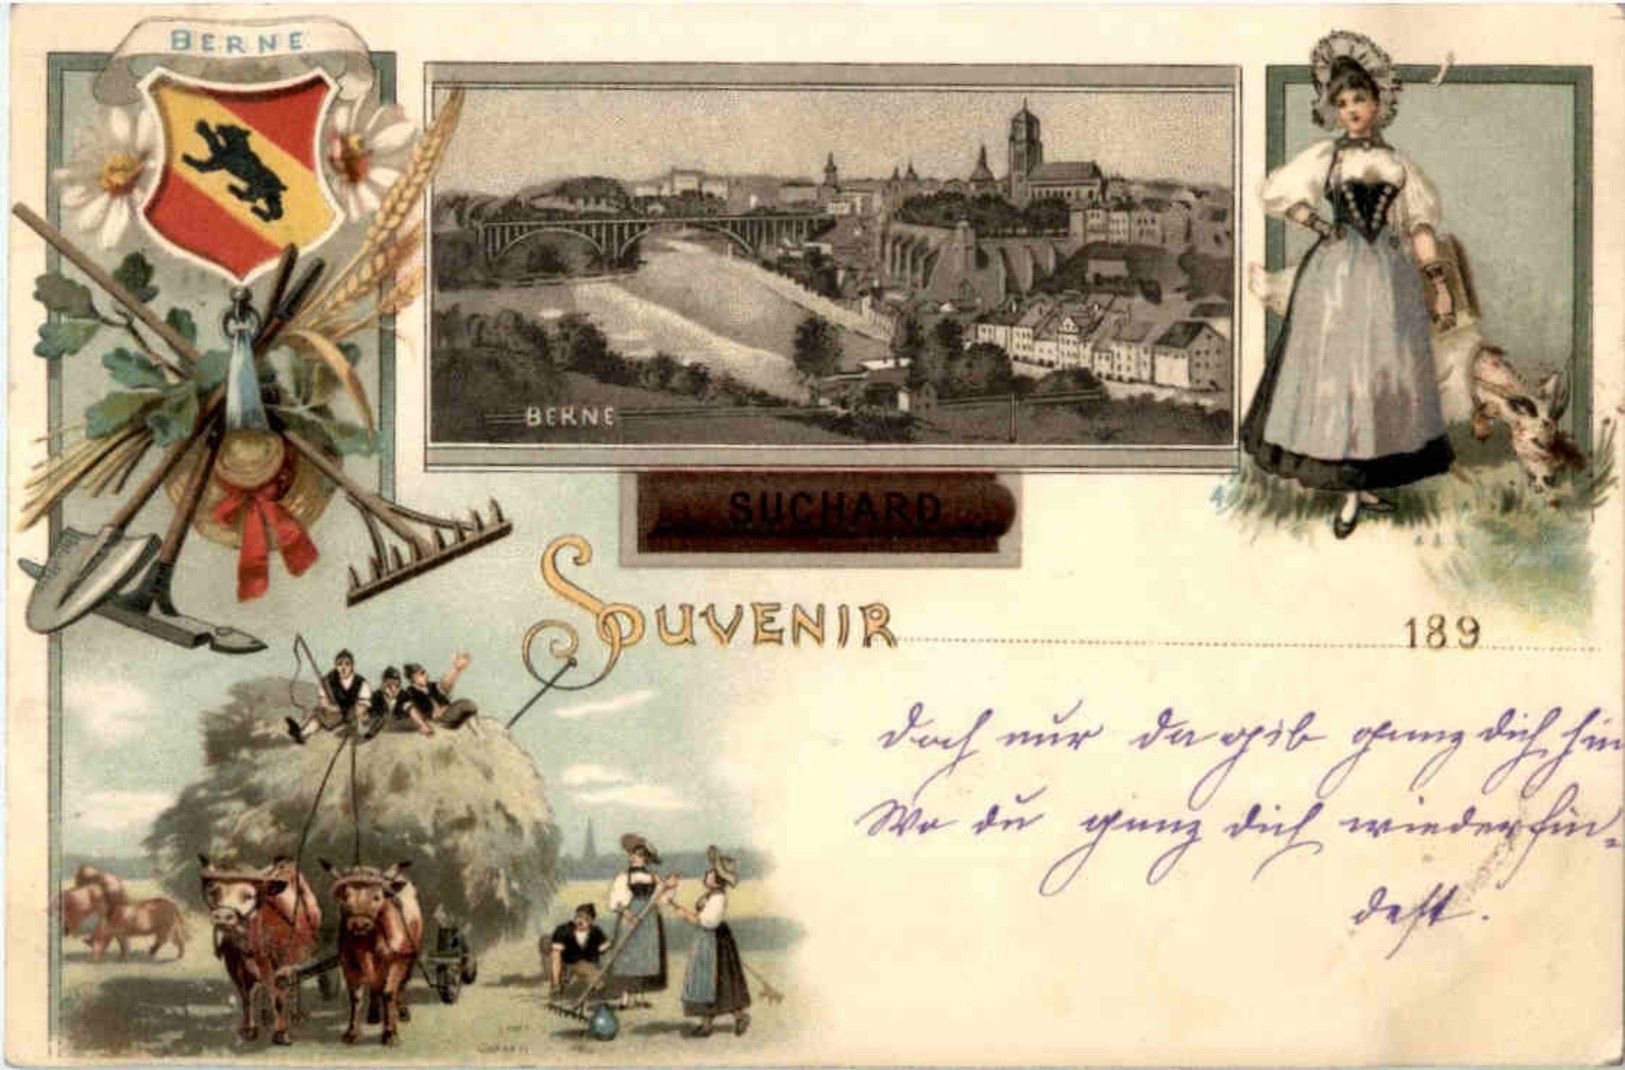 BERNE
BERNE
SUCHARD
SOUVENIR
189
Doch nur da gib ganz dich hin
Wo du ganz dich wiederfin-
dest.